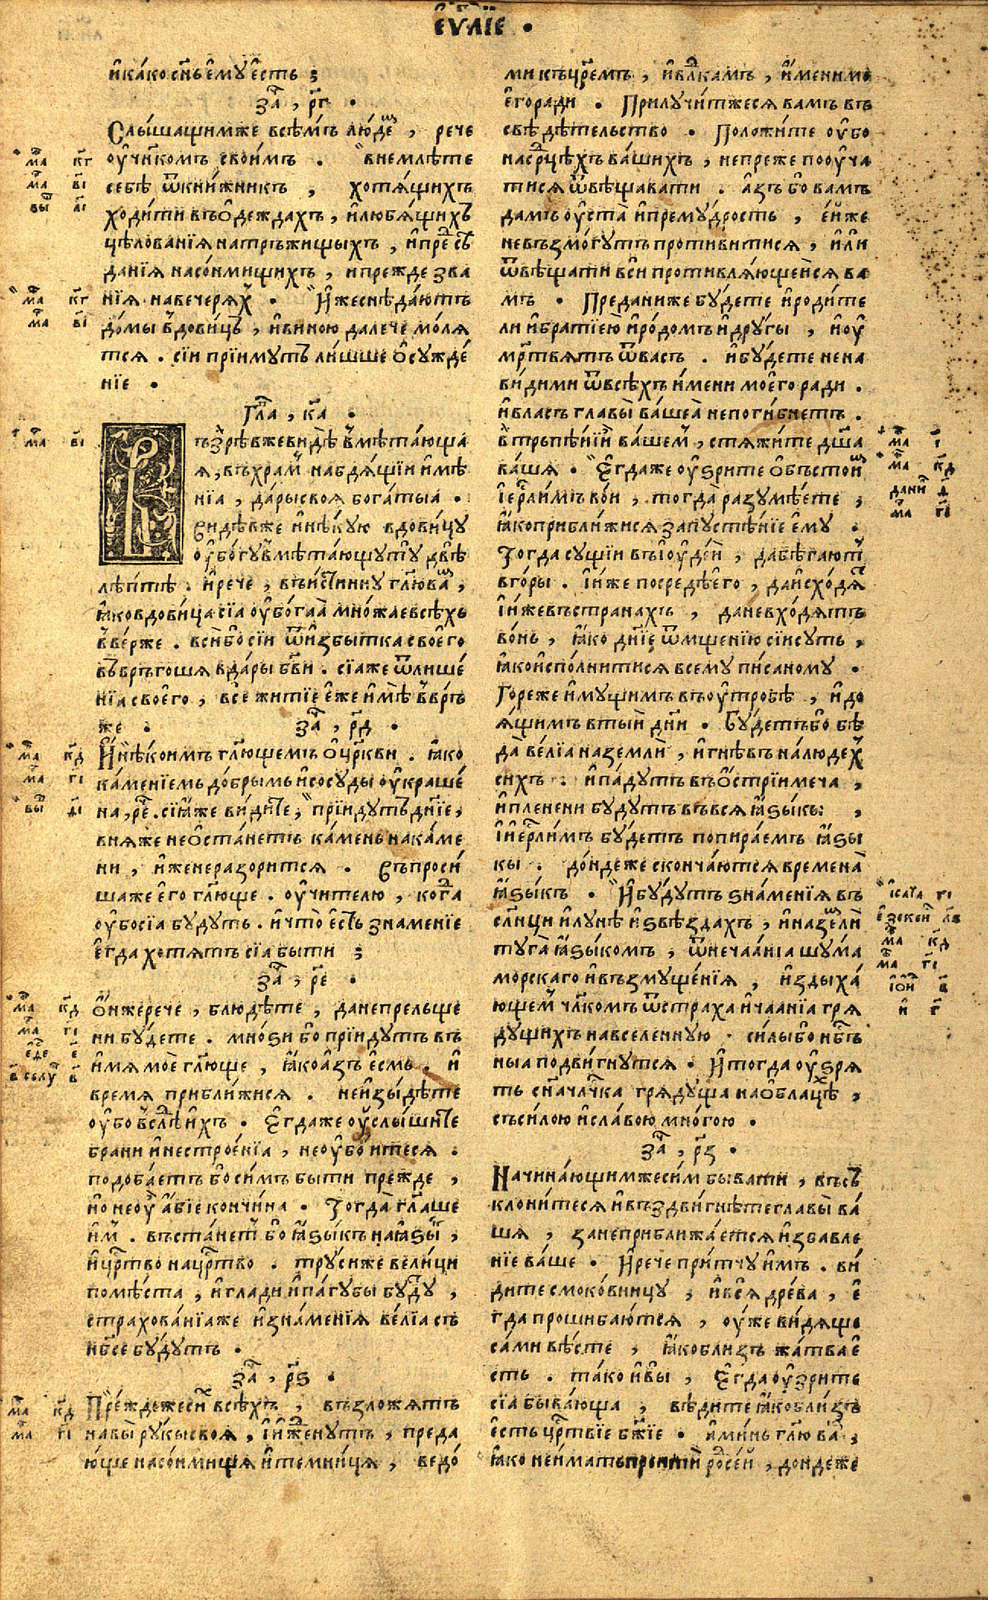 є҆ѵⷢ҇лїе .
и҆како сн҃ъ є҆мѹ є҆сть ;
заⷱ҇ , р҃г .
Слы́шащим же всѣ́мъ лю́деⷨ , рече
ѹ҆чн҃ком̾ъ свои́мъ . внемлѣ́те
себѣ ѿ кни́жникъ , хотѧ́щихъ
ходи́ти въ ѻ҆деждахъ , и҆ любѧ́щихъ
цѣлованїѧ на тръжищыхъ , и҆ преⷣсѣ
данїѧ на со́нмищихъ , и прежде зва
нїѧ на вечерѧⷯ . И҆же снѣда́ютъ
до́мы вдови́цъ , и҆ виною далече мо́лѧ
тсѧ . сїи прїи́мутъ ли́шше ѻ҆сужде́
нїе .
Глаⷡ҇ , к҃а .
Възрѣ́в же ви́дѣ въмѣта́юща
ѧ , въ храⷨ набдѧ́щїи и҆мѣ
нїа , да́ры своѧ бога́тыа .
Видѣв же и҆ нѣ́кую вдови́цу
ѹ҆бо́гу въмѣта́ющу тѹ двѣ̀
лѣ́птѣ . и҆ рече , въи́стинну гл҃ю ваⷨ ,
ꙗ҆ко вдови́ца сїа ѹ҆бо́гаа мно́жае всѣхъ
вве́рже . вси́ бо сїи ѿ и҆збы́тка своего
въвръгоша в да́ры бж҃їи . сїа же ѿ лише́
нїа своего , все житїе е҆же и҆мѣ̀ ввръ
же . заⷱ҇ , р҃д .
И҆ нѣ́коимъ гл҃ющемъ ѻ҆ цр҃кви . ꙗ҆ко
ка́менїемь до́брымь и҆ сосу́ды ѹ҆краше́
на , реⷱ . сїа҆ же ви́дите , прїи́дутъ дн҃їе ,
в ня же не ѻ҆ста́нетъ ка́мень на ка́ме
ни , и҆же не разори́тсѧ . Въпроси́
ша же є҆го гл҃юще . ѹ҆чителю , когⷣа
ѹ҆бо сїа бу́дуть . и҆ что̀ є҆сть знаменїе
є҆гда хотѧтъ сїа бы́ти ;
заⷱ҇ , р҃е .
Ѻ҆н же рече , блюдѣ́те , да не прельще
ни бу́дете . мно́ѕи бо прїи́дутъ въ
и҆мѧ моѐ гл҃юще , ꙗ҆ко а҆зъ є҆смь . и҆
времѧ прибли́жисѧ . не и҆зы́дѣте
ѹ҆бо въслѣⷣ и҆хъ . Є҆гда же ѹ҆слы́шите
бра́ни и҆ нестрое́нїа , не ѹ҆бо́итесѧ .
подоба́етъ бо сим бы́ти прежде ,
но не ѹ҆ а҆́бїе кончи́на . Тогда̀ гл҃аше
и҆мⷨ . въста́нет бо ꙗ҆ѕы́къ на ꙗ҆ѕыⷦ ,
и҆ цр҃тво на цр҃тво . труси же вели́ци
по мѣ́ста , и҆ гла́ди и҆ па́губы буⷣу ,
страхова́нїа же и҆ зна́менїѧ ве́лїа съ
нб҃се бу́дутъ .
заⷱ҇ , р҃ѕ .
Пре́жде же сиⷯ всѣ́хъ , възложѧтъ
на вы̀ ру́кы своѧ , и҆ и҆жⷣенутъ , преда
ю́ще на со́нмищѧ и҆ темни́ца , ведо́
ми къ цр҃емъ , и҆ влⷣкамъ , и҆мени мо
є҆го ради . Прилучи́т же сѧ вамъ въ
свѣдѣ́тельство . Положи́те ѹ҆бо
на ср҃цѣхъ ва́шихъ , не преже поѹ҆ча
тисѧ ѿвѣщава́ти . а҆зъ бо вамъ
дамъ ѹ҆ста̀ и҆ прему́дрость , є҆́й же
не възмо́гутъ проти́витисѧ , и҆ли
ѿвѣща́ти вси противлѧ́ющеисѧ ва
мъ . Преда́ни же бу́дете и҆ роди́те
ли и҆ бра́тїею и҆ ро́домъ и҆ дру́гы , и҆ ѹ҆
мр҃твѧтъ ѿ васъ . и҆ бу́дете нена
ви́дими ѿ всѣхъ и҆мени моего ради .
и҆ власъ главы̀ ва́шеа не поги́бнетъ .
в трьпѣ́нїи ва́шемⷨ , стѧжи́те дш҃а
ва́шѧ . Є҆гда же ѹ҆́ѕрите ѻ҆бъстоиⷨ
і҆ер҃лимъ во́и , тогда̀ разумѣ́ете ,
ꙗ҆ко прибли́жисѧ запустѣ́нїе є҆му .
Тогда сущїи въ і҆ѹде́и , да бѣ́гаютⷮ
в го́ры . и҆ и҆же посредѣ є҆го , да и҆схо́дѧⷮ
и҆ и҆же въ страна́хъ , да не вхо́дѧтъ
во́нь , ꙗ҆ко дн҃їе ѿмщенїю сїи суть ,
ꙗ҆ко и҆спо́лнитисѧ всему пи́саному .
Горе же и҆му́щимъ въ ѹ҆тро́бѣ , и҆ до
ѧ́щимъ в тыи дн҃и . Бу́детъ бо бѣ
да̀ ве́лїа на землѝ , и҆ гнѣ́въ на лю́дехⷯ
сихъ . и҆ паду́тъ въ ѻ҆́стрїи меча ,
и҆ плене́ни бу́дутъ въ всѧ ꙗ҆ѕы́кы ,
и҆ і҆ер҃лимъ бу́детъ попира́емъ ꙗ҆ѕы
кы . до́ндеже сконча́ютсѧ времена̀
ꙗ҆ѕы́къ . И҆ бу́дутъ ѕна́менїѧ въ
сл҃нци и҆ лунѣ̀ и҆ ѕвѣ́здахъ , и҆ на землѝ
туга̀ ꙗ҆ѕы́комъ , ѿ неча́анїа шу́ма
морскаго и҆ възмуще́нїѧ , и҆здыха́
ющемⷨ чл҃комъ ѿ страха и҆ ча́анїа грѧ
ду́щихъ на вселе́нную . си́лы бо нб҃съ
ныа подви́гнутсѧ . И҆ тогда ѹ҆́ѕрѧ
ть сн҃а чл҃чка грѧду́ща на ѻ҆блацѣⷯ ,
съ си́лою и҆ сла́вою мно́гою .
заⷱ҇ , р҃з .
Начина́ющим же си́м быва́ти , въсъ
клони́тесѧ и҆ въздви́гнѣте главы̀ ва́
шѧ , зане прибли́жаетсѧ и҆збавле
нїе ва́ше . И҆ рече при́тчу и҆мъ . ви́
дите смоко́вницу , и҆ всѧ дре́ва , є҆
гда прошиба́ютсѧ , ѹ҆же ви́дѧще
са́ми вѣ́сте , ꙗ҆ко близъ жа́тва є҆
сть . та́ко и҆ вы̀ , Є҆гда ѹ҆́зрите
сїа быва́юща , вѣ́дите ꙗ҆ко бли́зъ
є҆сть цр҃твїе бж҃їе . а҆ми́нь гл҃ю ваⷨ ,
ꙗ҆ко не и҆́мать прейтѝ роⷣ сей , дондеже